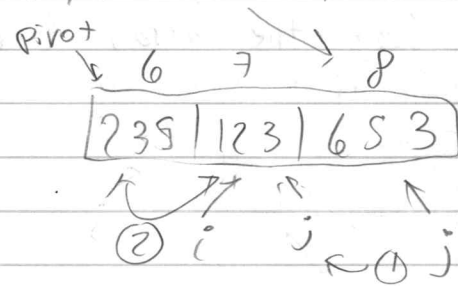 pivot
6 7 8
235 | 123 | 653
② i j ← ① j